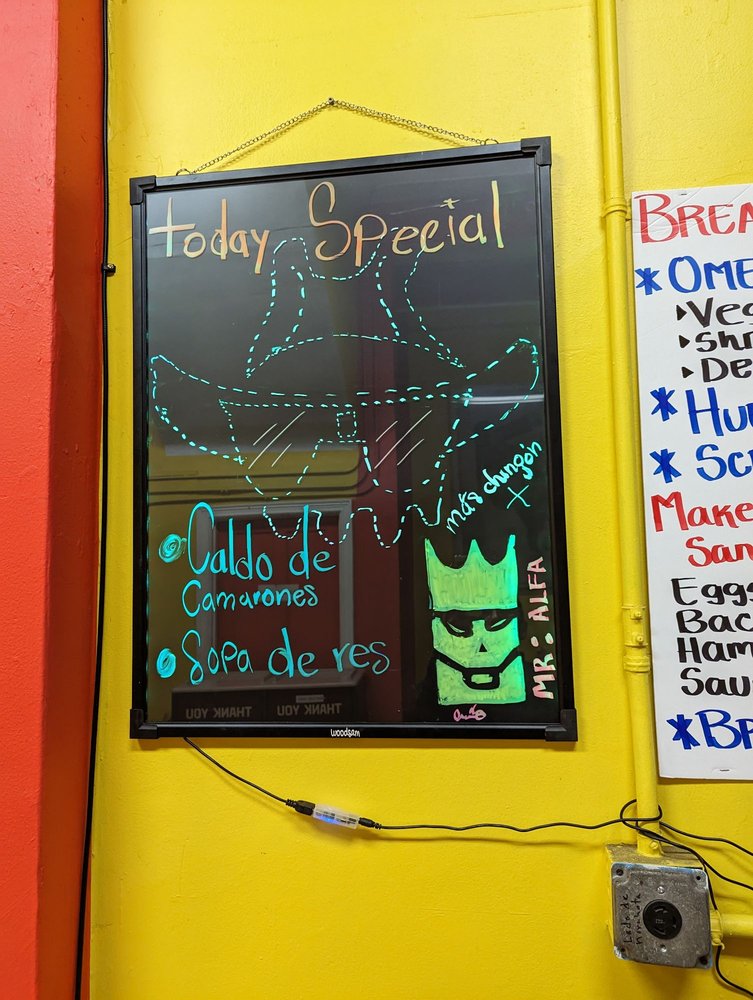 today Special
más chungón
x
Caldo de
Camarones
Sopa de res
MR: ALFA
THANK YOU THANK YOU
woodsam
BREA
* OME
Veg
Shr
De
* Hu
* Sc
Make
San
Eggs
Bac
Ham
Sau
* BR